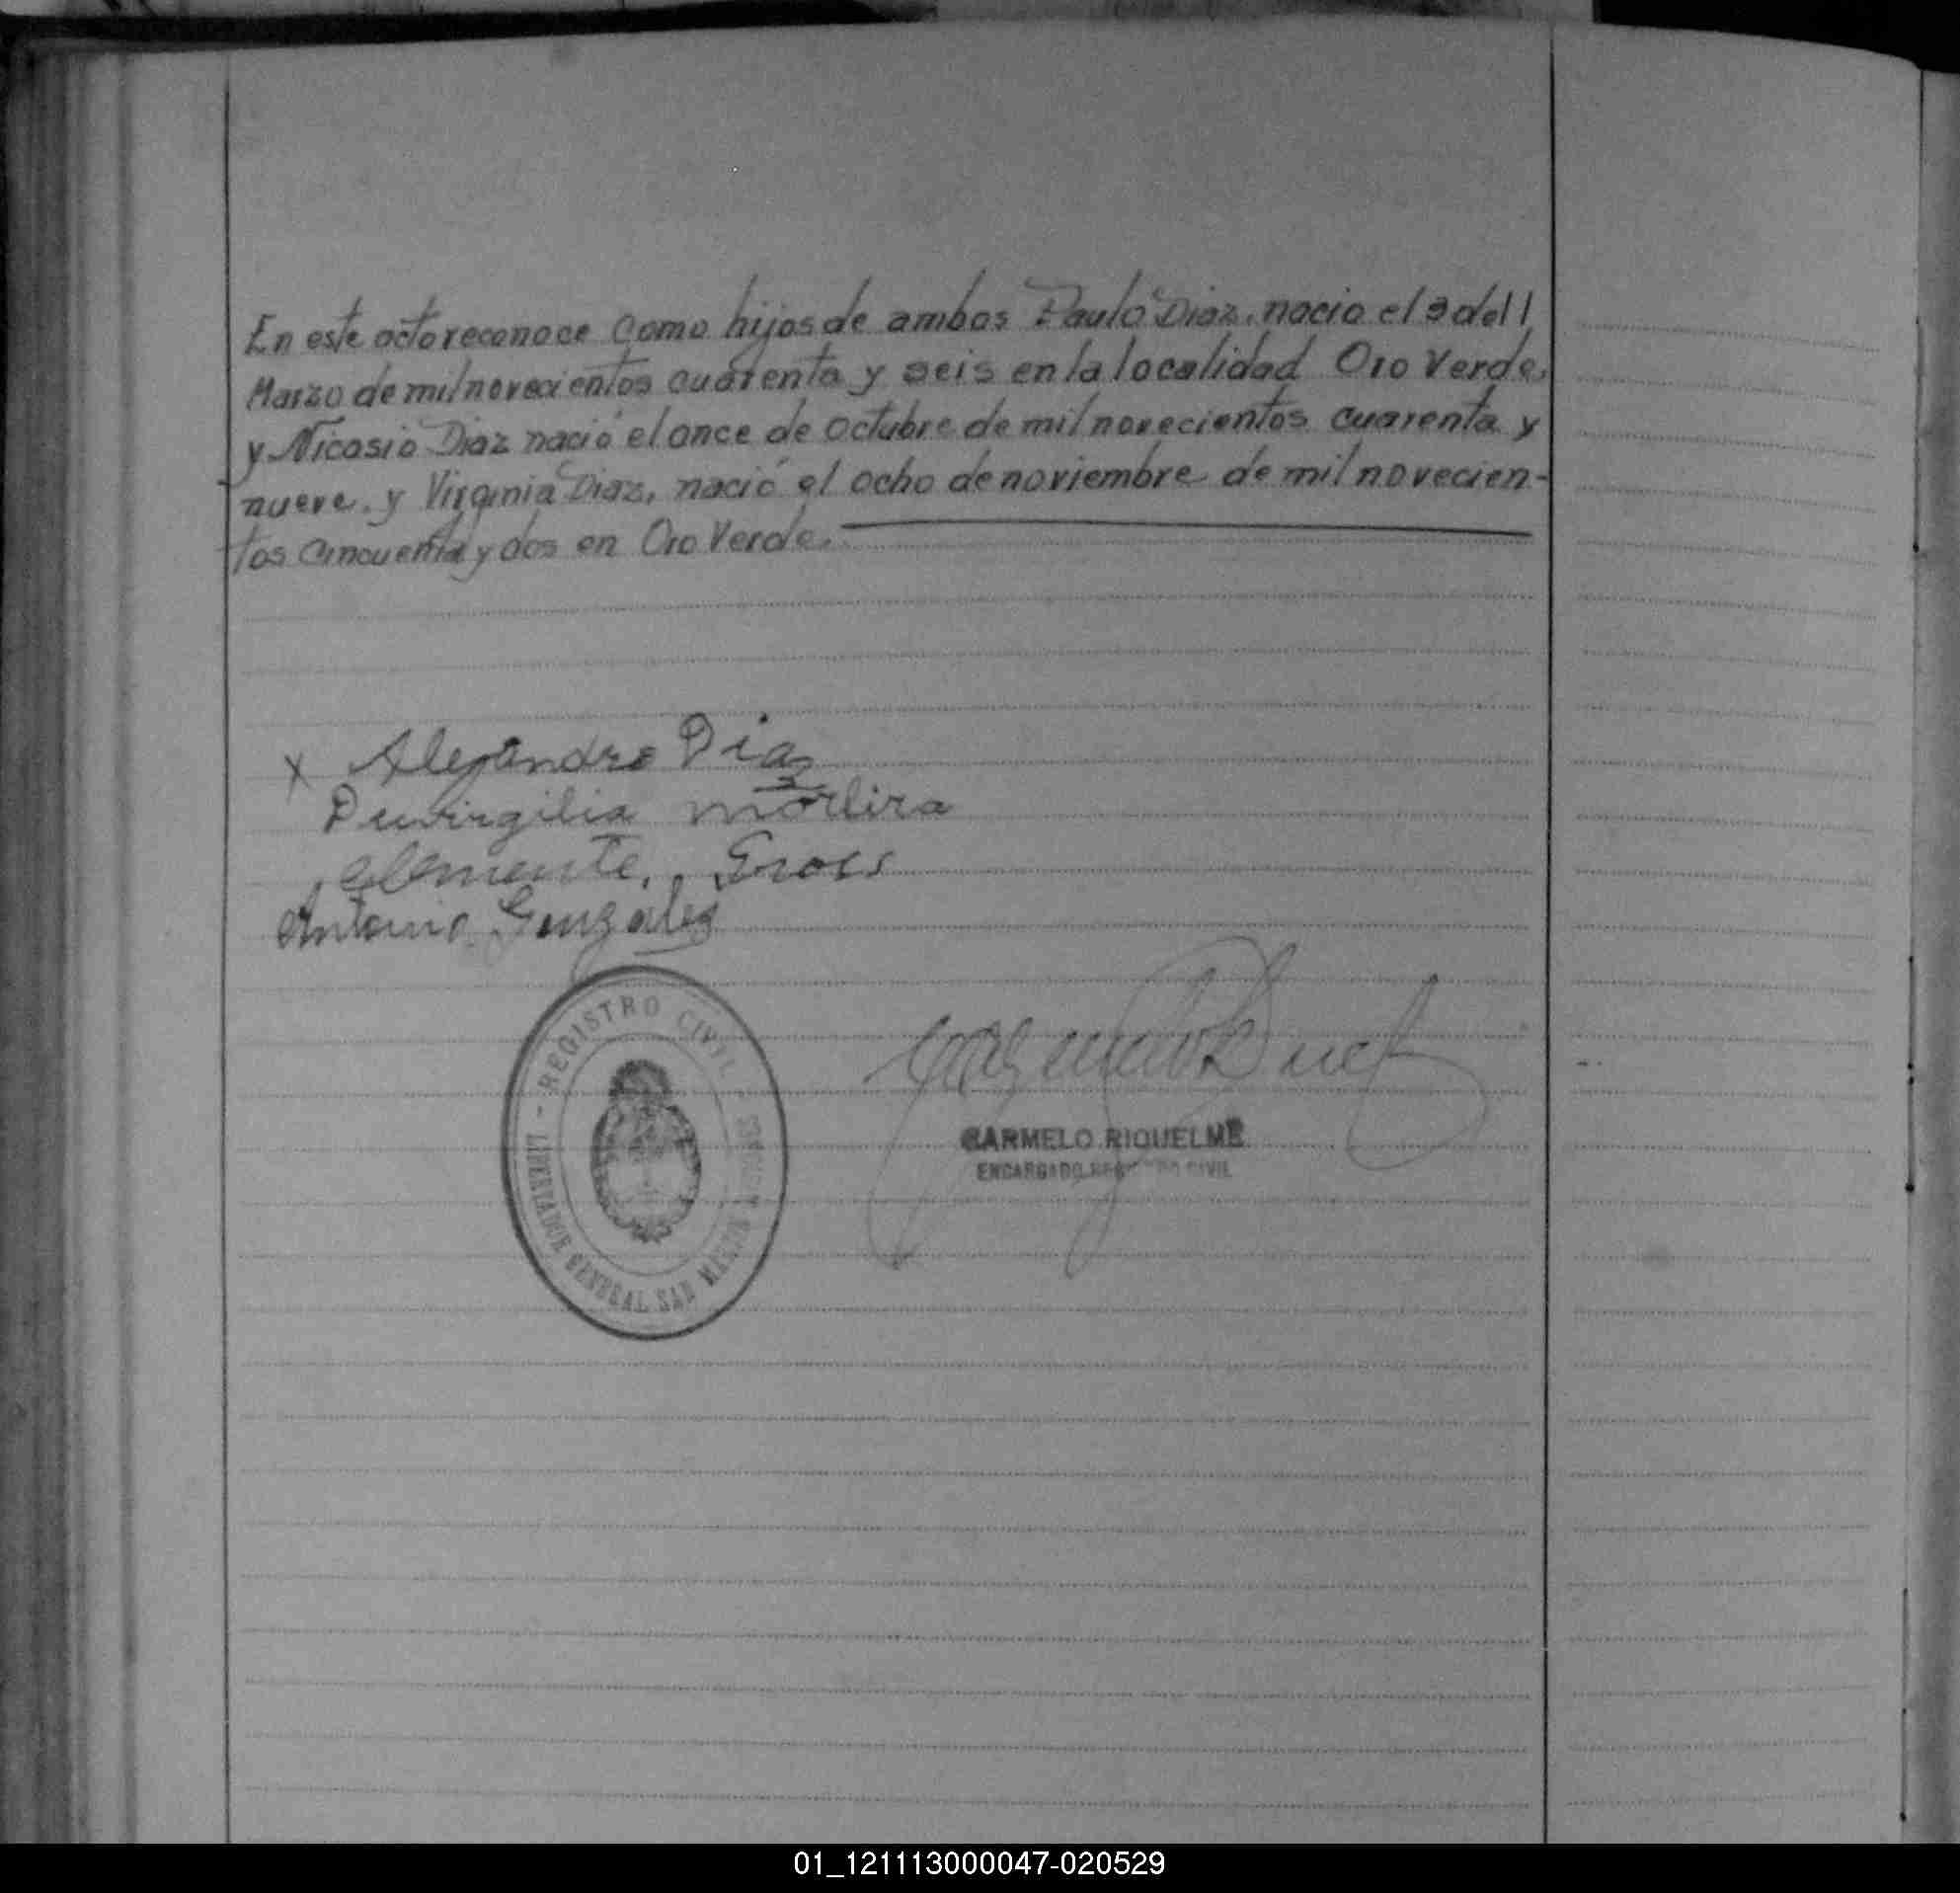 En este acto reconoce como hijos de ambos Paulo Diaz, nacio el 3 del
Marzo de mil novecientos cuarenta y seis en la localidad Oro Verde,
y Nicasio Diaz nació el once de octubre de mil novecientos cuarenta y
nueve. y Virginia Diaz, nació el ocho de noviembre de mil novecien-
tos cincuenta y dos en Oro Verde.
x Alejandro Diaz
Duvirgilia
Clemente. Gross
Antonio Gonzalez
REGISTRO CIVIL
LIBERTADOR GENERAL SAN MARTIN
CARMELO RIQUELME
ENCARGADO REGISTRO CIVIL
01_121113000047-020529